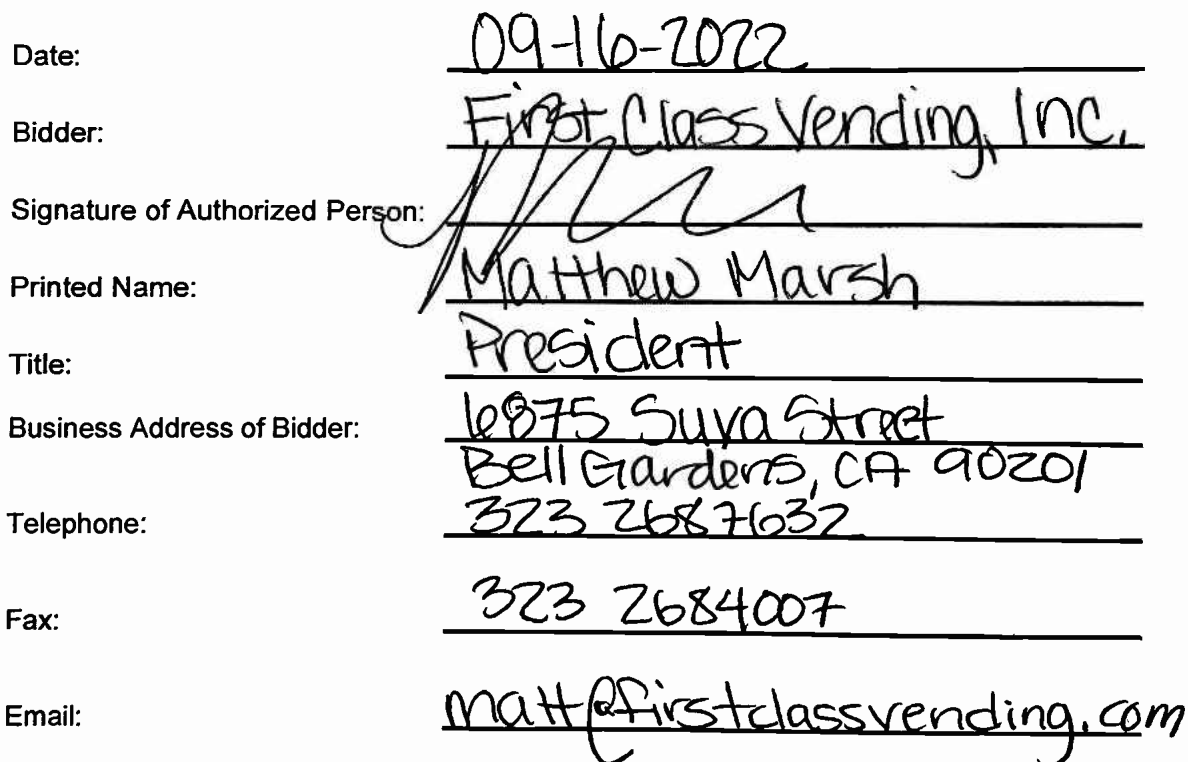 Date: 09-16-2022
Bidder: First Class Vending, Inc.
Signature of Authorized Person:
Printed Name: Matthew Marsh
Title: President
Business Address of Bidder: 6875 Suva Street
Bell Gardens, CA 90201
Telephone: 323 2687632
Fax: 323 2684007
Email: matt@firstclassvending.com